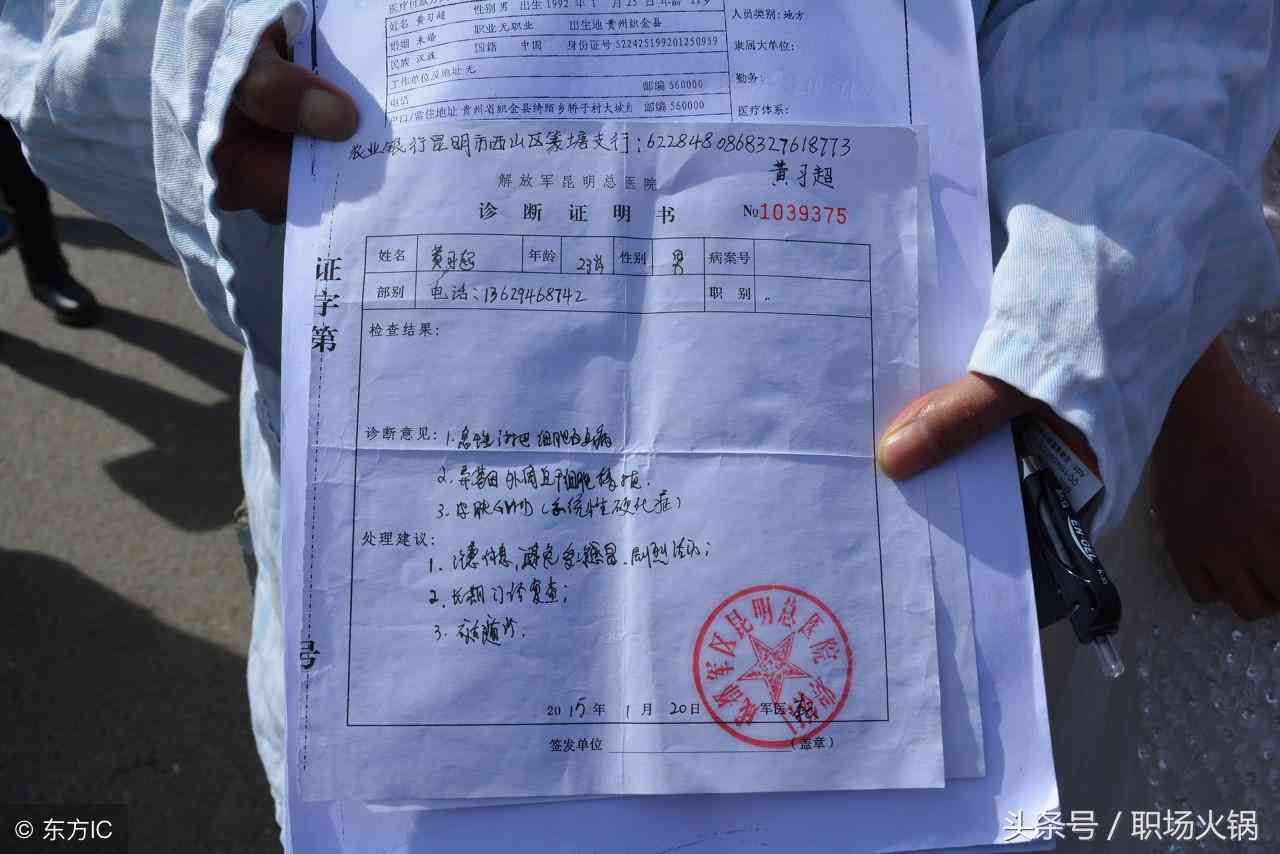 姓名 黄习超 性别 男 出生 1992 年 1 月 25 日 年龄 22岁
婚姻 未婚 职业 无职业 出生地 贵州织金县
民族 汉族 国籍 中国 身份证号 522425199201250959
工作单位及地址 无 邮编 560000
电话
户口/常住地址 贵州省织金县绮陌乡骄子村大坡组 邮编 560000
人员类别: 地方
隶属大单位:
勤务:
医疗体系:
农业银行昆明市西山区篆塘支行: 6228480868327618773
黄习超
解放军昆明总医院
诊断证明书 №1039375
姓名 黄习超 年龄 23岁 性别 男 病案号
部别 电话: 13629468742 职别
检查结果:
诊断意见: 1. 急性淋巴细胞白血病
2. 异基因外周血干细胞移植.
3. 皮肤GVHD (系统性硬化症)
处理建议:
1. 注意休息, 避免受凉感冒. 剧烈活动;
2. 长期门诊复查;
3. 随诊.
2015 年 1 月 20 日 军医
签发单位 (盖章)
成都军区昆明总医院
证字第
号
© 东方IC
头条号 / 职场火锅